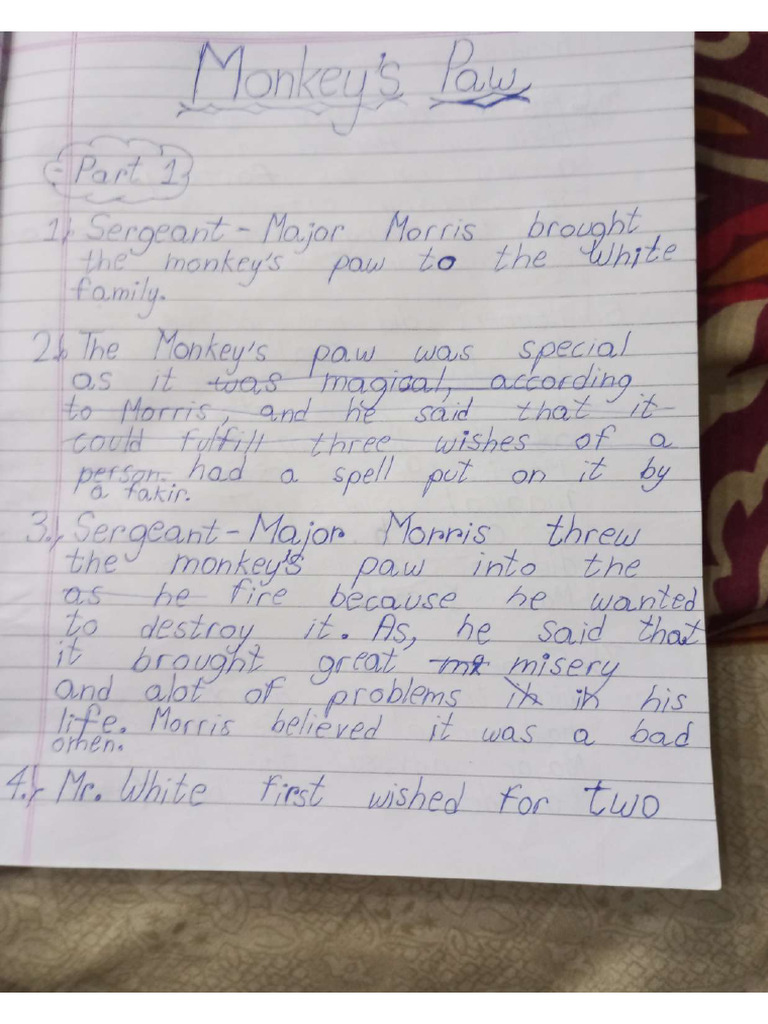 Monkey's Paw
Part 1
1) Sergeant - Major Morris brought
the monkey's paw to the White
family.
2) The Monkey's paw was special
as it was magical, according
to Morris, and he said that it
could fulfill three wishes of a
person had a spell put on it by
a fakir.
3) Sergeant - Major Morris threw
the monkey's paw into the
as he fire because he wanted
to destroy it. As, he said that
it brought great misery
and alot of problems in in his
life. Morris believed it was a bad
omen.
4) Mr. White first wished for two